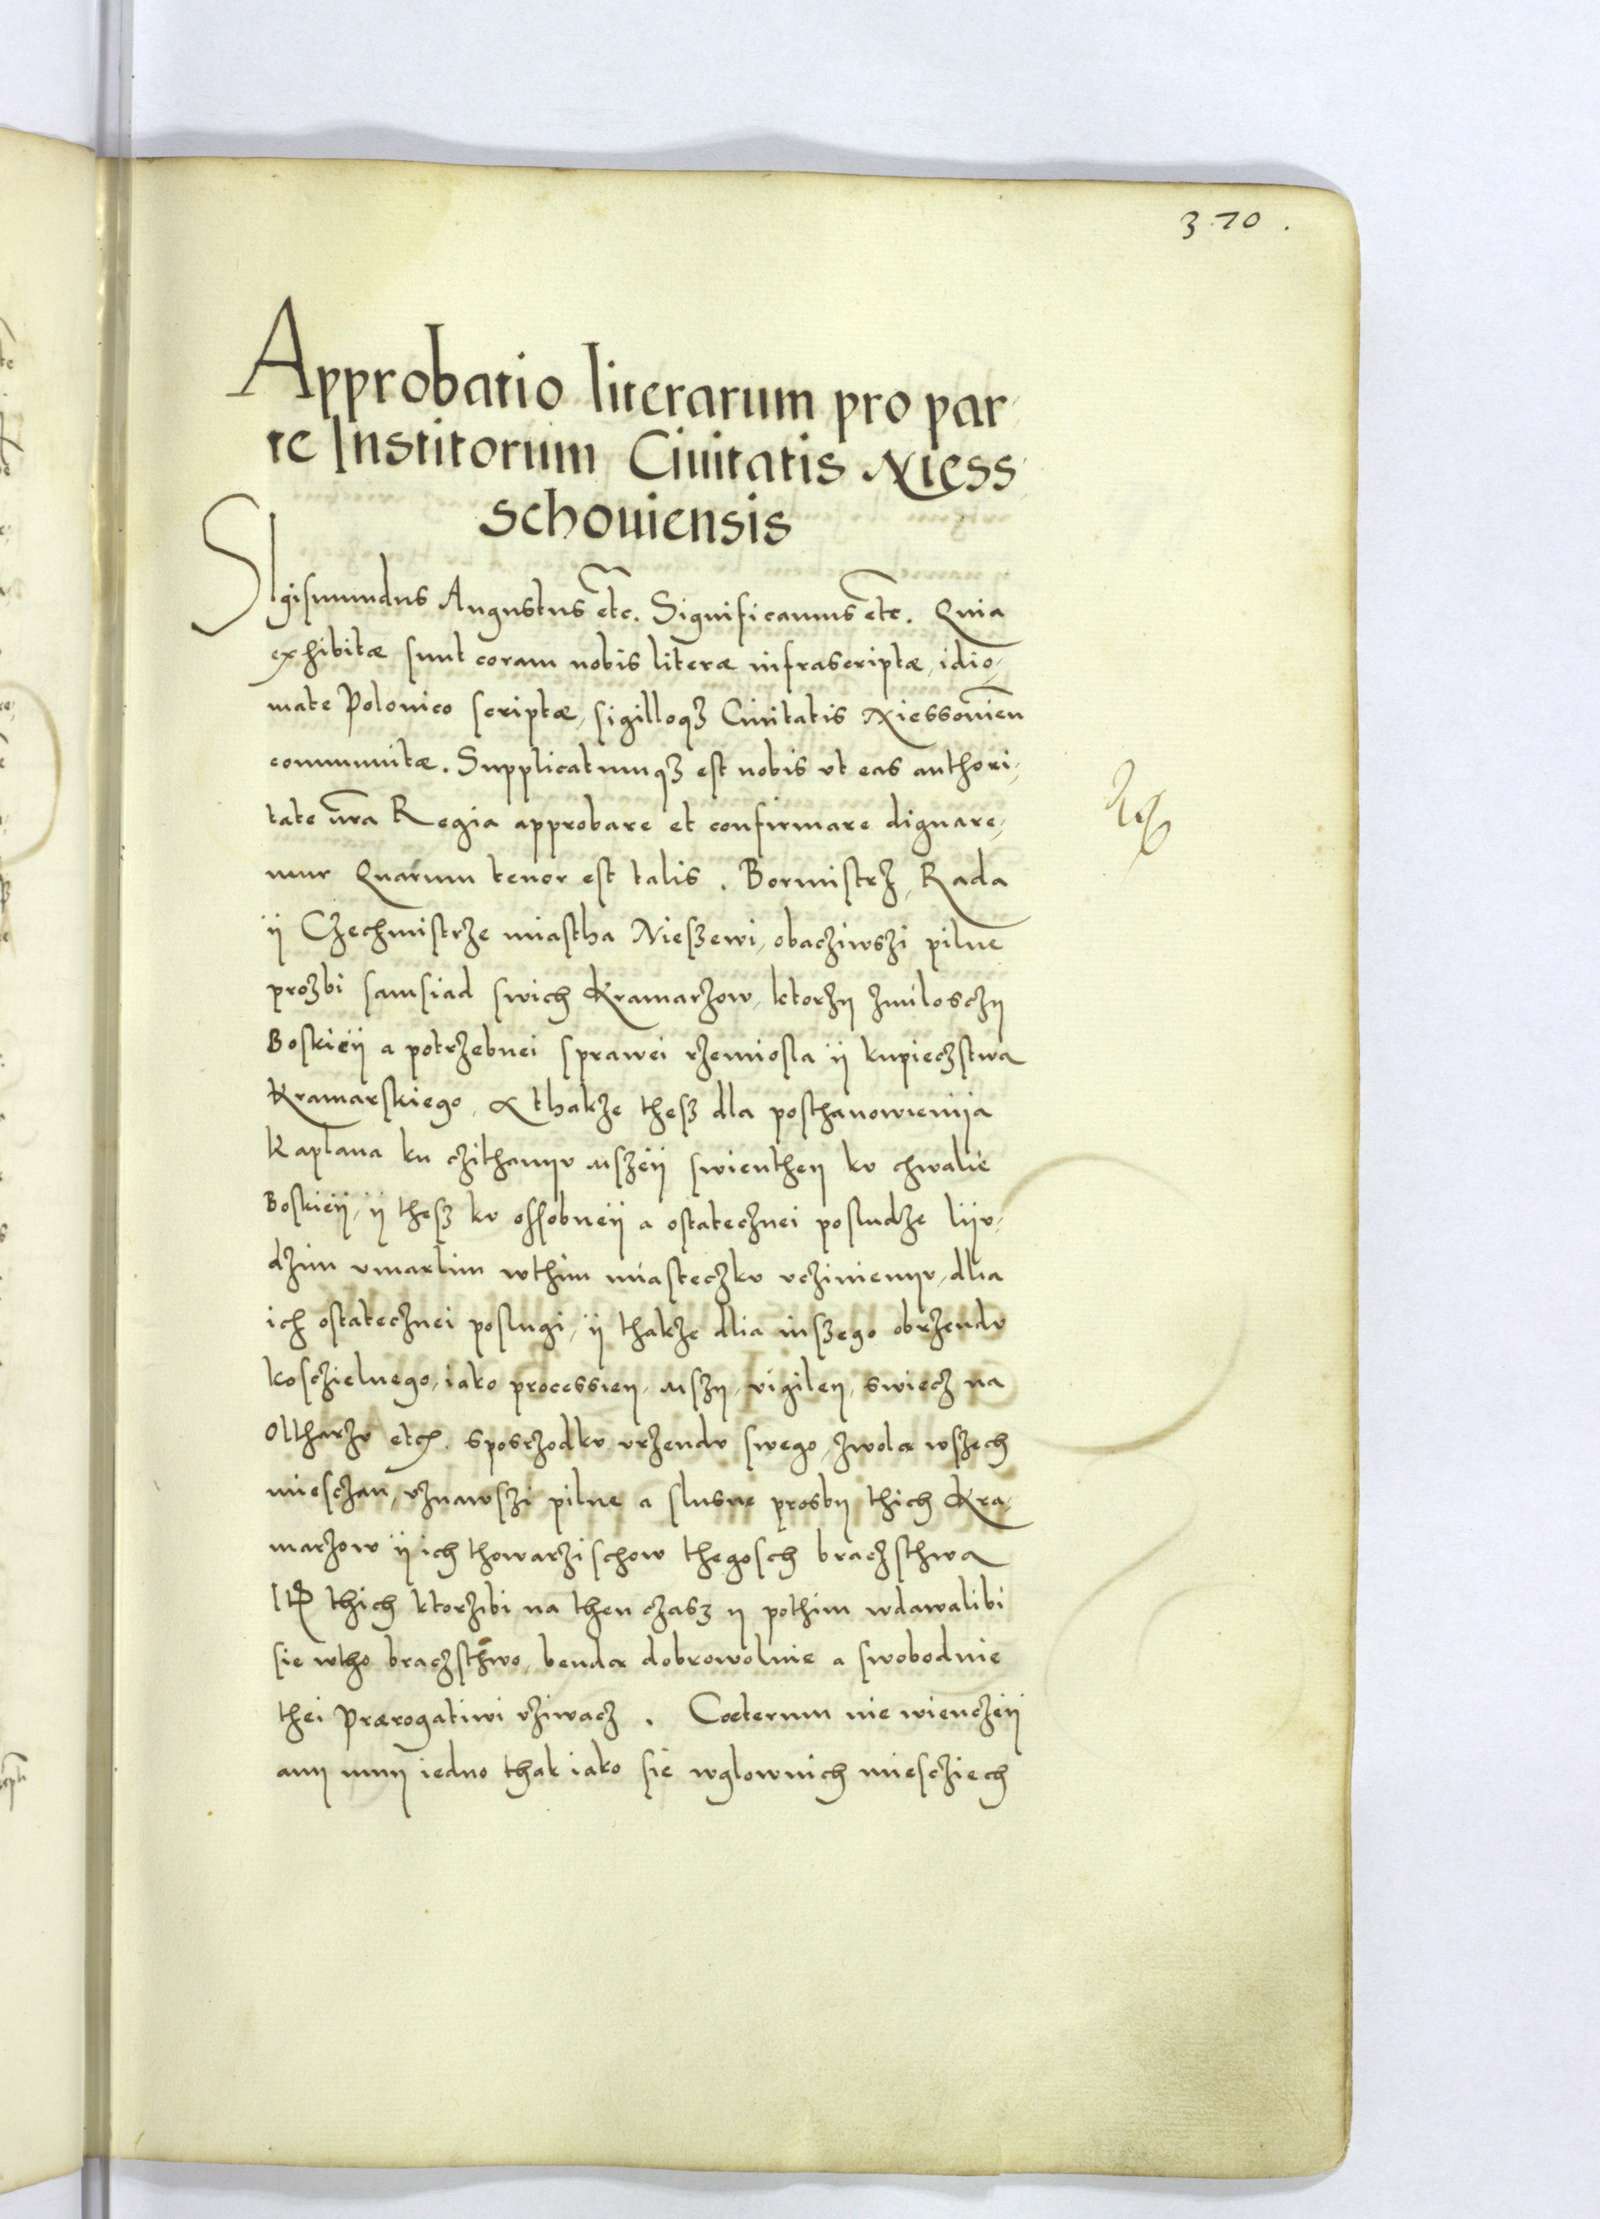 370.
Approbatio literarum pro par-
te Institorum Ciuitatis Niess-
schouiensis
SIgismundus Augustus etc. Significamus etc. Quia
exhibitæ sunt coram nobis literæ infrascriptæ, idio-
mate Polonico scriptæ, sigilloqꝫ Ciuitatis Niessouien̄
communitæ. Supplicatumqꝫ est nobis vt eas authori-
tate nr̄a Regia approbare et confirmare dignare-
mur Quarum tenor est talis. Bormistrz, Rada
ÿ Czechmistrze miastha Nieszewi, obacziwszi pilne
prozbi samsiad swich Kramarzow, ktorzy zmilosczy
Boskieÿ a potrzebnei sprawei rzemiosla ÿ kupieczstwa
Kramarskiego, A thakze thesz dla posthanowienya
Kaplana ku czithanyv Mszeÿ swienthey kv chwalie
Boskieÿ, ÿ thesz kv ossobneÿ a ostatecznei posludze lyv-
dzim vmarlim wthim miasteczkv vczinienyv, dlia
ich ostatecznei poslugi, ÿ thakze dlia inszego obrzendv
kosczielnego, iako processiey, Mszy, vigiley, swiecz na
Oltharzv etc. sposrzodkv vrzendv swego, zwola wszech
miesczan, vznawszi pilne a slusne prosby thich Kra-
marzow ÿ ich thowarzischow thegosch braczsthwa
It̄ thich ktorzibi na then czasz y pothim wdawalibi
sie wtho braczsthwo, benda dobrowolnie a swobodnie
thei Prærogatiwi vziwacz. Cœterum nie wienczeÿ
any mnÿ iedno thak iako sie wglownich miesciech